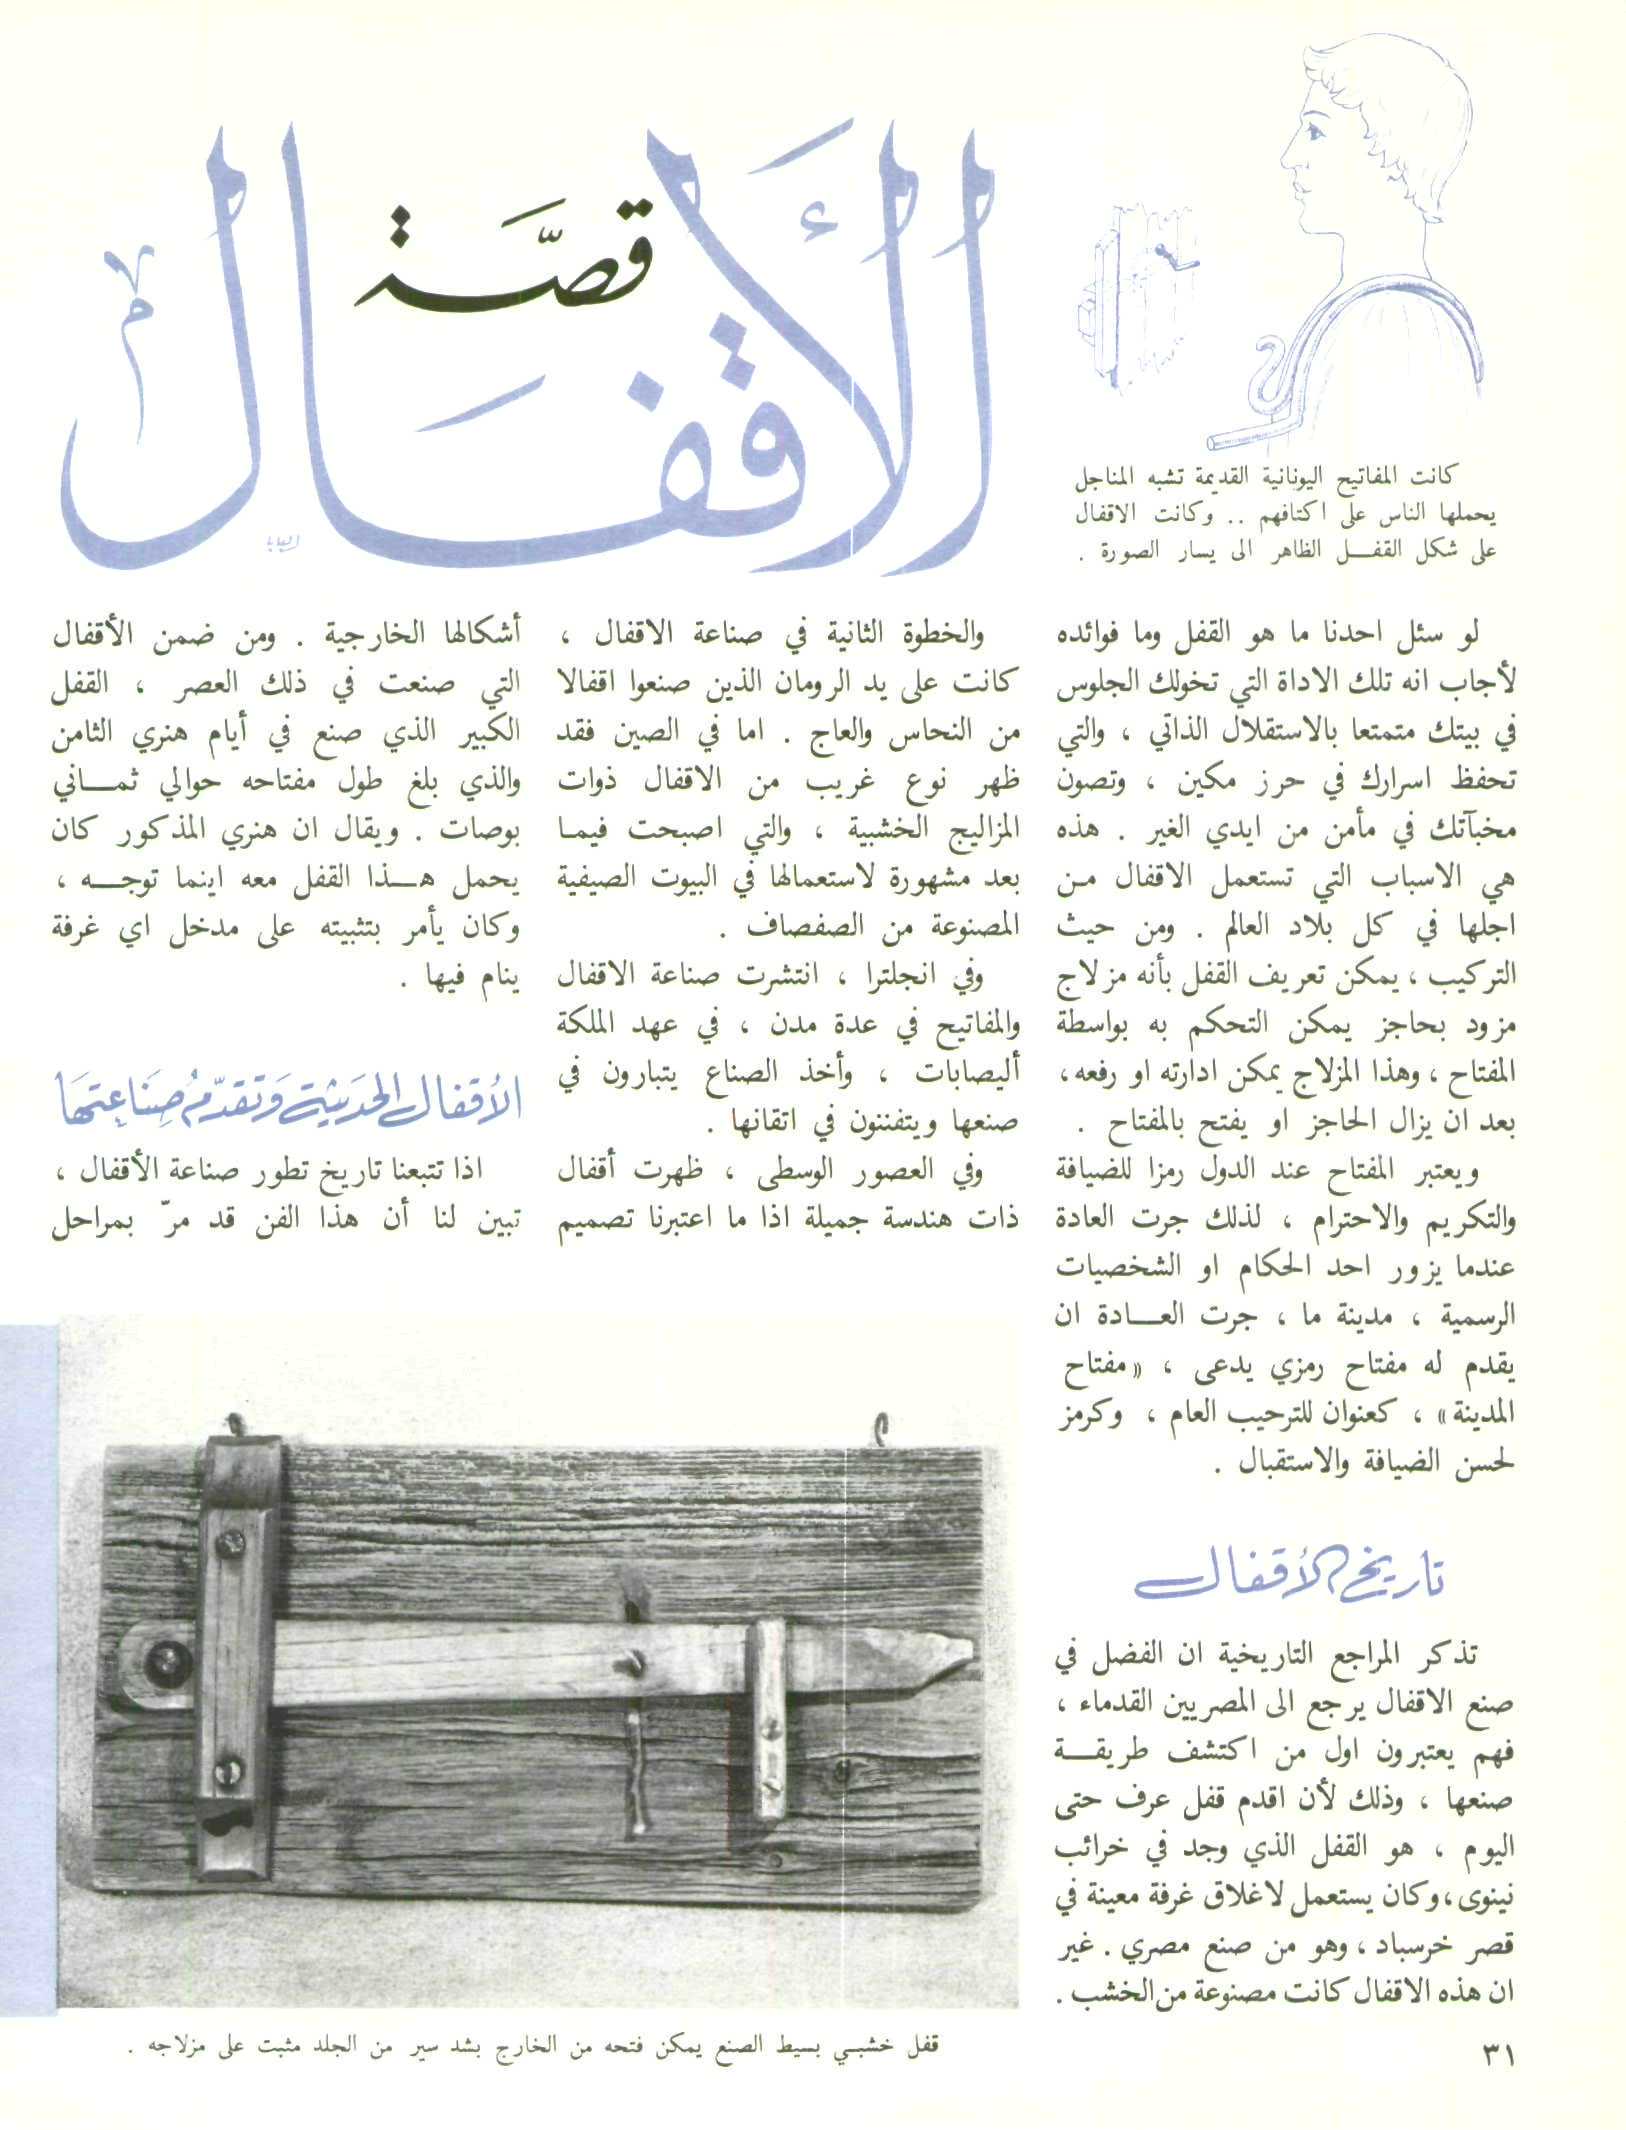 قصّة
الأقفال
كانت المفاتيح اليونانية القديمة تشبه المناجل
يحملها الناس على اكتافهم .. وكانت الاقفال
على شكل القفـل الظاهر الى يسار الصورة .
لو سئل احدنا ما هو القفل وما فوائده
لأجاب انه تلك الاداة التي تخولك الجلوس
في بيتك متمتعا بالاستقلال الذاتي ، والتي
تحفظ اسرارك في حرز مكين ، وتصون
مخبآتك في مأمن من ايدي الغير . هذه
هي الاسباب التي تستعمل الاقفال مـن
اجلها في كل بلاد العالم . ومن حيث
التركيب ، يمكن تعريف القفل بأنه مزلاج
مزود بحاجز يمكن التحكم به بواسطة
المفتاح ، وهذا المزلاج يمكن ادارته او رفعه،
بعد ان يزال الحاجز او يفتح بالمفتاح .
ويعتبر المفتاح عند الدول رمزا للضيافة
والتكريم والاحترام ، لذلك جرت العادة
عندما يزور احد الحكام او الشخصيات
الرسمية ، مدينة ما ، جرت العـــادة ان
يقدم له مفتاح رمزي يدعى ، «مفتاح
المدينة» ، كعنوان للترحيب العام ، وكرمز
لحسن الضيافة والاستقبال .
تاريخ الأقفال
تذكر المراجع التاريخية ان الفضل في
صنع الاقفال يرجع الى المصريين القدماء ،
فهم يعتبرون اول من اكتشف طريقــة
صنعها ، وذلك لأن اقدم قفل عرف حتى
اليوم ، هو القفل الذي وجد في خرائب
نينوى، وكان يستعمل لاغلاق غرفة معينة في
قصر خرسباد ، وهو من صنع مصري . غير
ان هذه الاقفال كانت مصنوعة من الخشب .
والخطوة الثانية في صناعة الاقفال ،
كانت على يد الرومان الذين صنعوا اقفالا
من النحاس والعاج . اما في الصين فقد
ظهر نوع غريب من الاقفال ذوات
المزاليج الخشبية ، والتي اصبحت فيمـا
بعد مشهورة لاستعمالها في البيوت الصيفية
المصنوعة من الصفصاف .
وفي انجلترا ، انتشرت صناعة الاقفال
والمفاتيح في عدة مدن ، في عهد الملكة
أليصابات ، وأخذ الصناع يتبارون في
صنعها ويتفننون في اتقانها .
وفي العصور الوسطى ، ظهرت أقفال
ذات هندسة جميلة اذا ما اعتبرنا تصميم
أشكالها الخارجية . ومن ضمن الأقفال
التي صنعت في ذلك العصر ، القفل
الكبير الذي صنع في أيام هنري الثامن
والذي بلغ طول مفتاحه حوالي ثمـــاني
بوصات . ويقال ان هنري المذكور كان
يحمل هــذا القفل معه اينما توجــه ،
وكان يأمر بتثبيته على مدخل اي غرفة
ينام فيها .
الأقفال الحَديثة وَتقدّمُ صِنَاعِتهَا
اذا تتبعنا تاريخ تطور صناعة الأقفال ،
تبين لنا أن هذا الفن قد مرّ بمراحل
قفل خشبي بسيط الصنع يمكن فتحه من الخارج بشد سير من الجلد مثبت على مزلاجه .
٣١